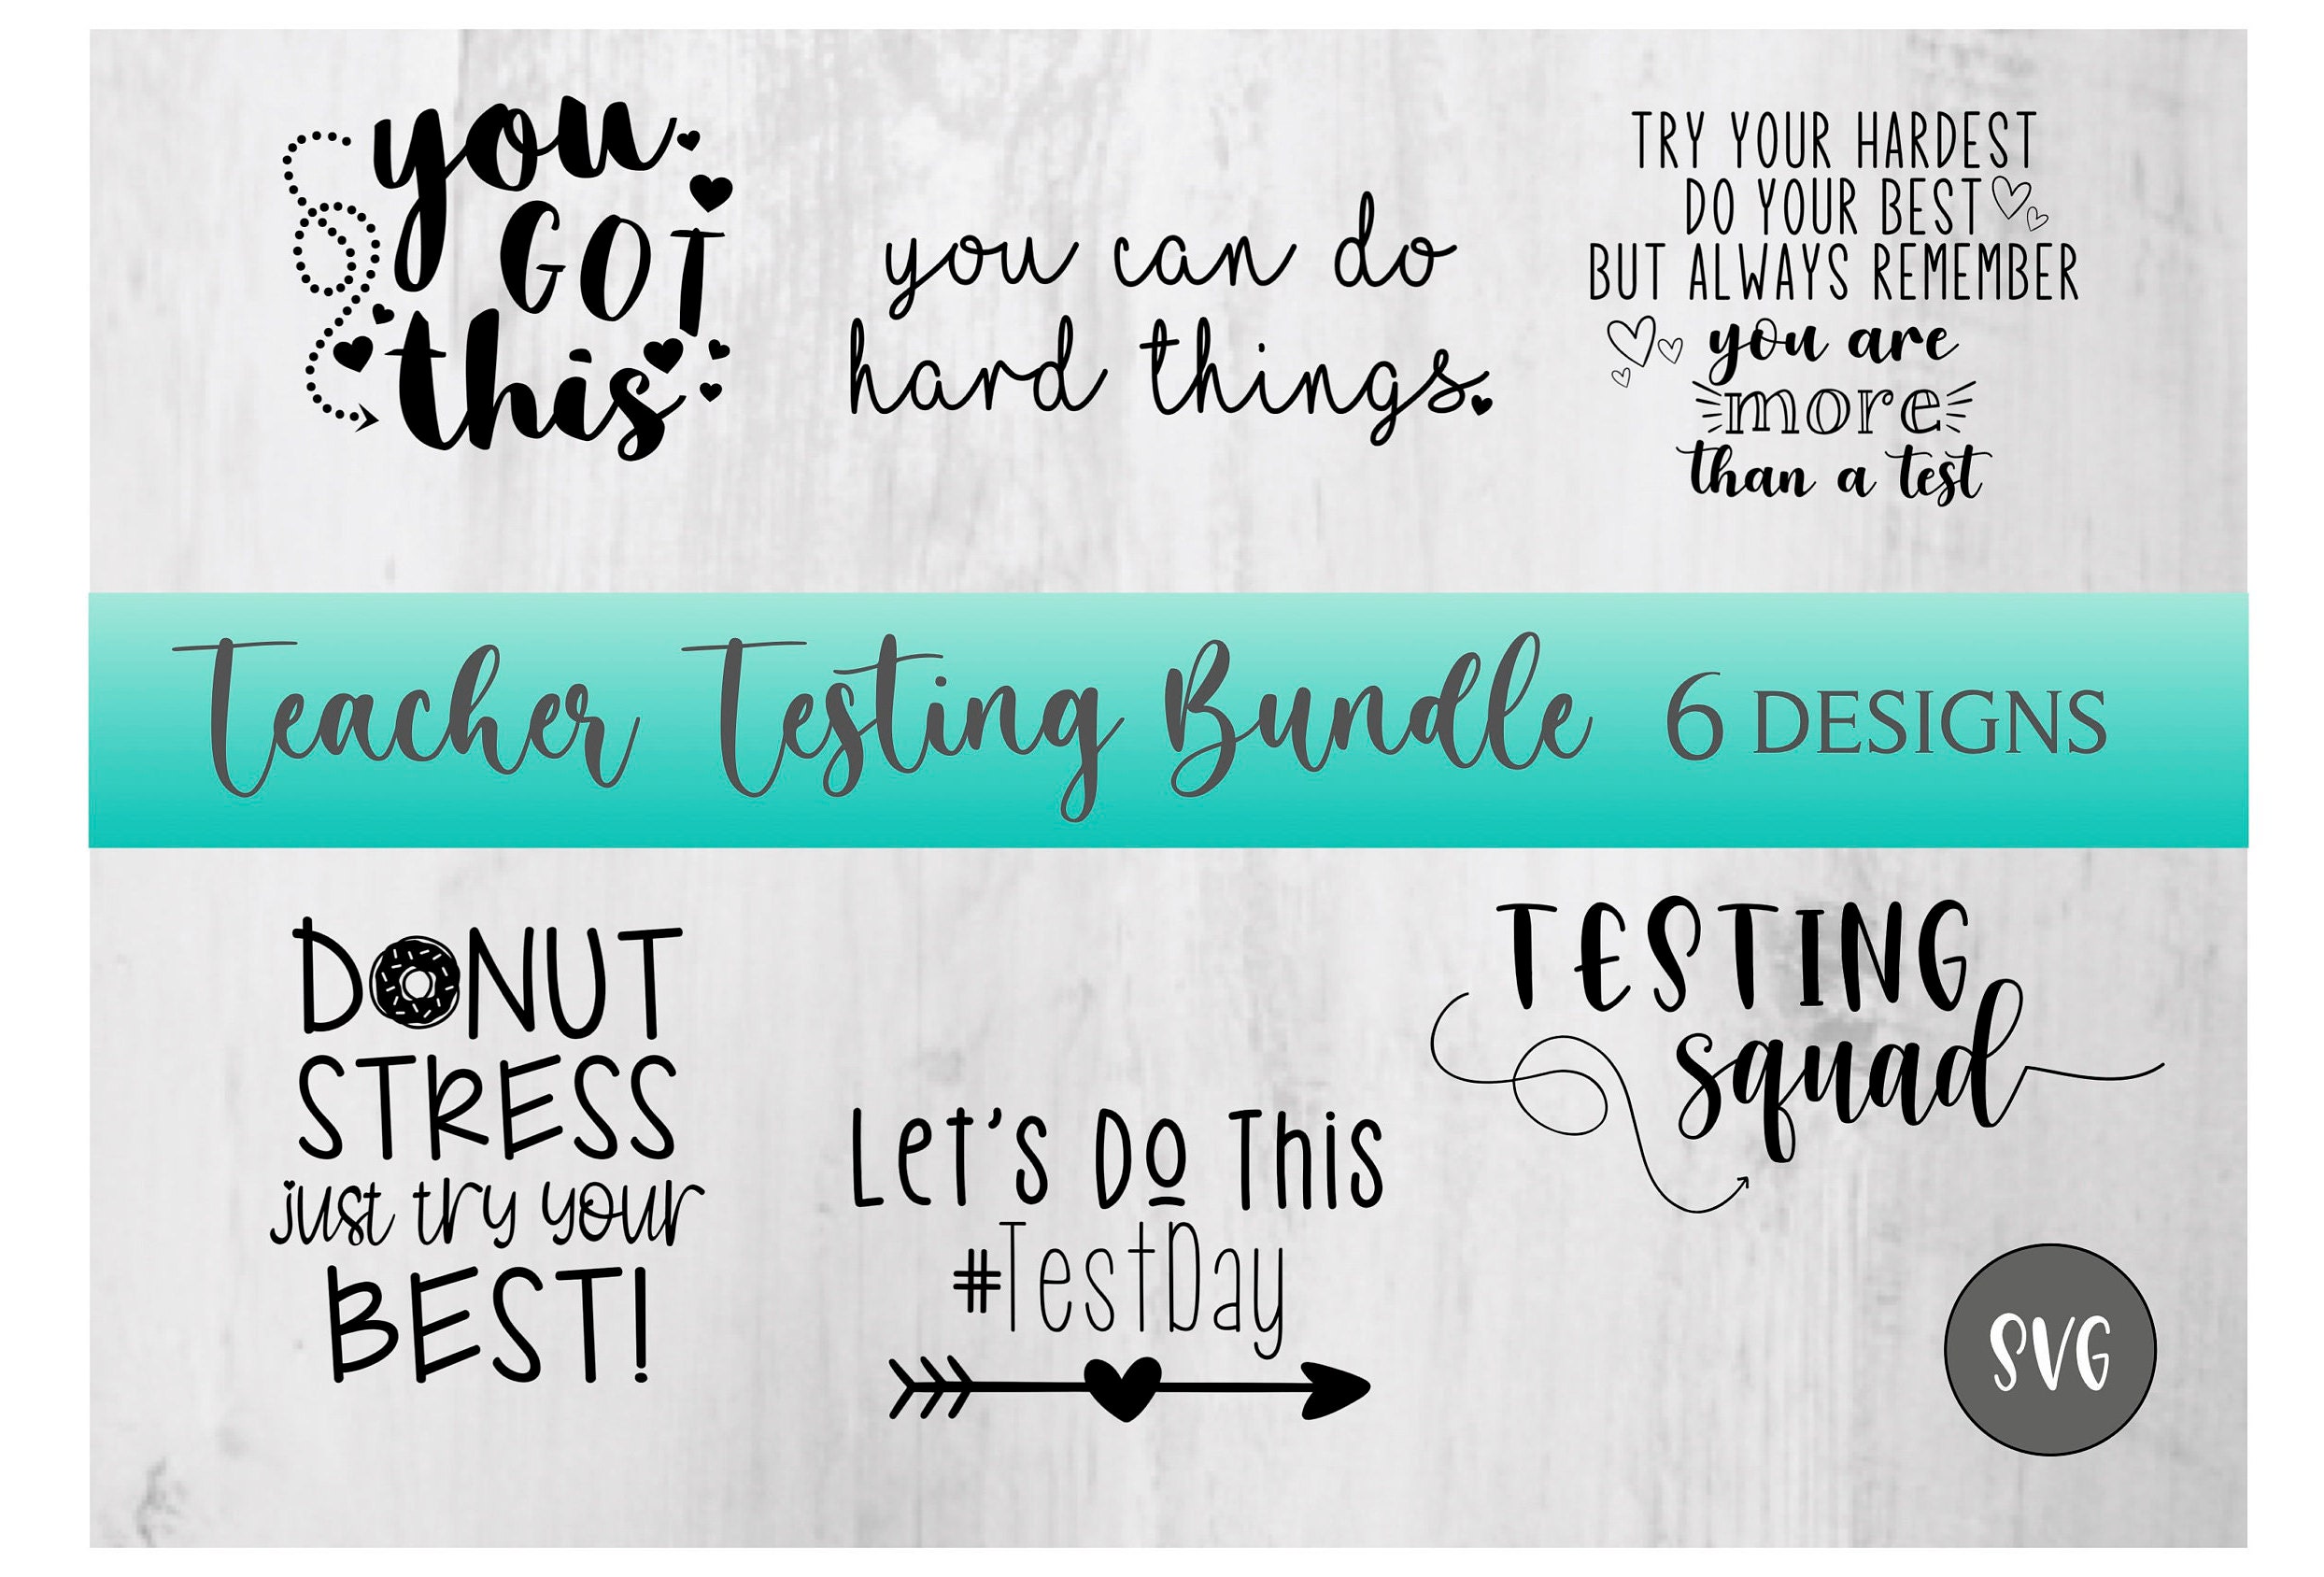 you
GOT
this
you can do
hard things.
TRY YOUR HARDEST
DO YOUR BEST
BUT ALWAYS REMEMBER
you are
more
than a test
Teacher Testing Bundle 6 DESIGNS
DONUT
STRESS
just try your
BEST!
Let's Do This
#TestDay
TESTING
squad
SVG